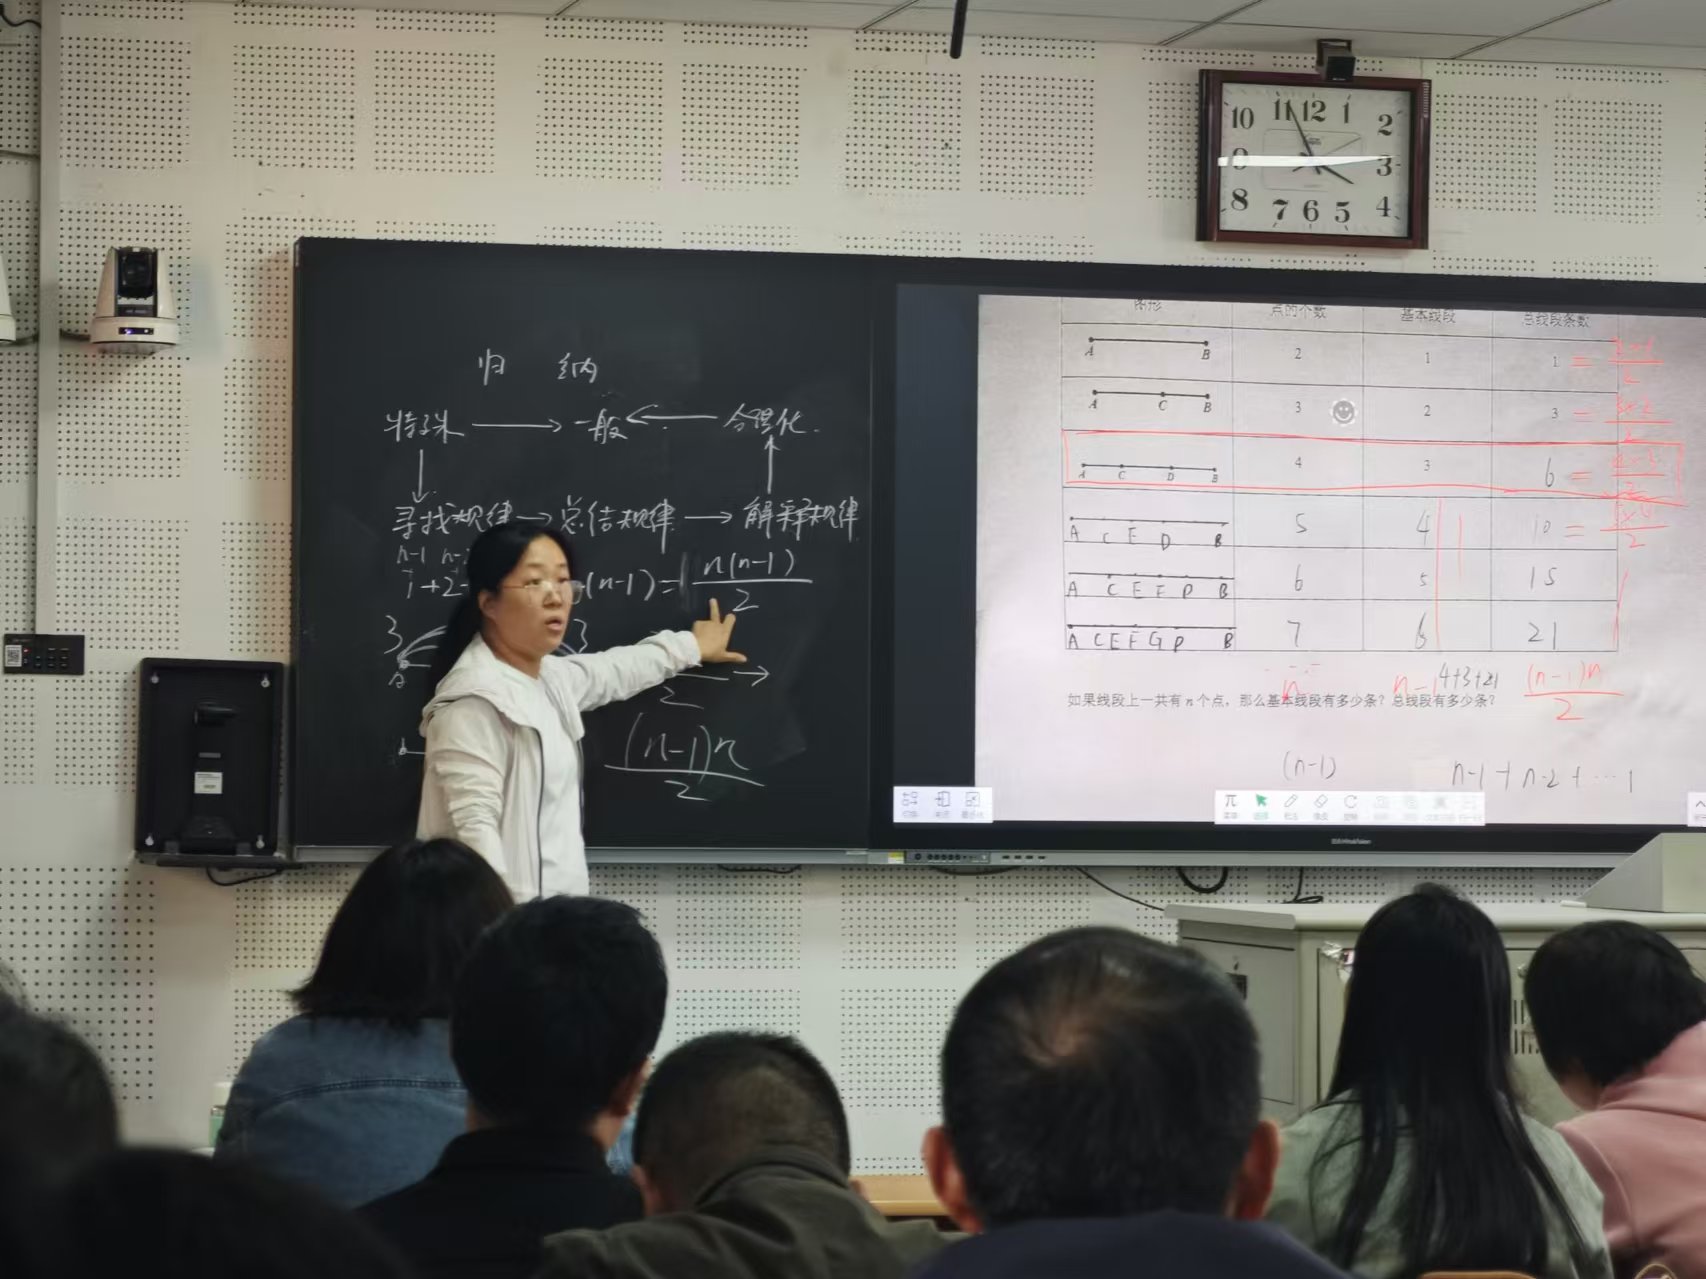 10 11 12 1 2
9 3
8 7 6 5 4
归 纳
特殊 → 一般 ← 合理化
寻找规律 → 总结规律 → 解释规律
n-1
1+2
(n-1)=
n(n-1)
2
3
3
A
2
(n-1)n
2
图形 点的个数 基本线段 总线段条数
A B 2 1 1 =
2
A C B 3 2 3 =
2
A C D B 4 3 6 =
A C E D B 5 4 10 =
2
A C E F D B 6 5 15
A C E F G D B 7 6 21
n n-1 4+3+2+1 (n-1)n
2
如果线段上一共有n个点，那么基本线段有多少条？总线段有多少条？
(n-1) n-1+n-2+…1